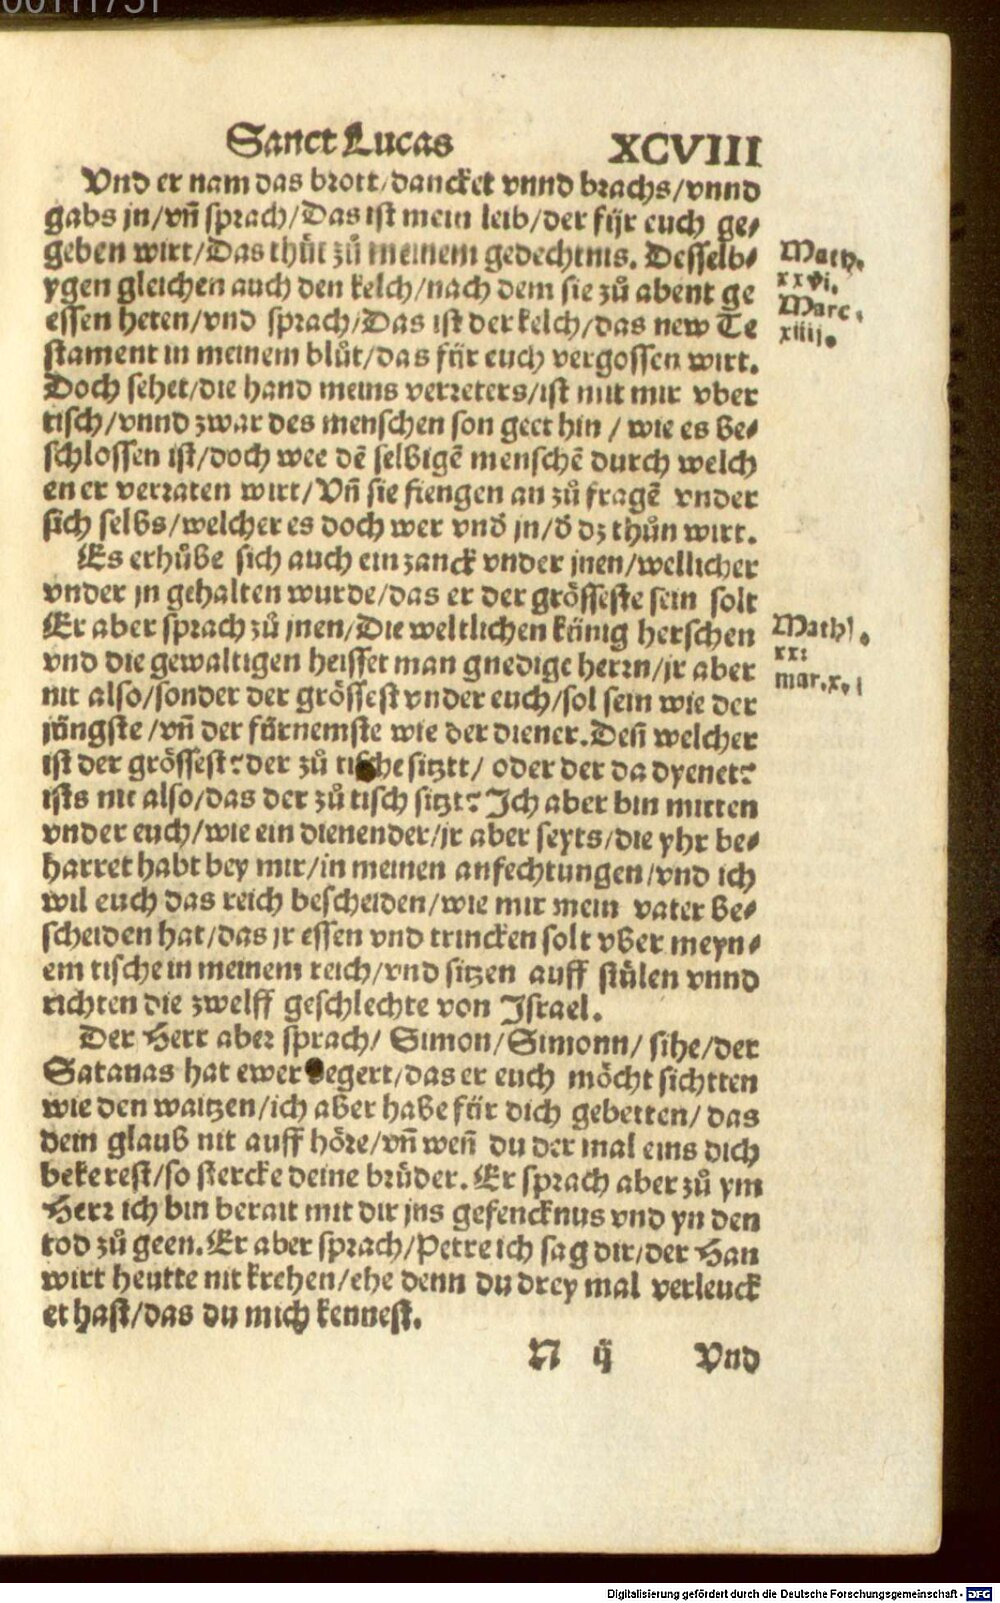 Sanct Lucas XCVIII
Vnd er nam das brott/dancket vnnd brachs/vnnd
gabs jn/vn̄ sprach/Das ist mein leib/der für euch ge⸗
geben wirt/Das thůt zů meinem gedechtnis. Desselb⸗
ygen gleichen auch den kelch/nach dem sie zů abent ge
essen heten/vnd sprach/Das ist der kelch/das new Te
stament in meinem blůt/das für euch vergossen wirt.
Doch sehet/die hand meins verreters/ist mit mir vber
tisch/vnnd zwar des menschen son geet hin / wie es be⸗
schlossen ist/doch wee dē selbigē menschē durch welch
en er verraten wirt/Vn̄ sie fiengen an zů fragē vnder
sich selbs/welcher es doch wer vnd̄ jn/d̄ dz thůn wirt.
Es erhůbe sich auch ein zanck vnder jnen/wellicher
vnder jn gehalten wurde/das er der grösseste sein solt
Er aber sprach zů jnen/Die weltlichen künig herschen
vnd die gewaltigen heisset man gnedige herrn/jr aber
nit also/sonder der grössest vnder euch/sol sein wie der
jüngste /vn̄ der fürnemste wie der diener. Den̄ welcher
ist der grössest? der zů tische sitztt/ oder der da dyenet?
ists nit also/das der zů tisch sitzt? Ich aber bin mitten
vnder euch/wie ein dienender/jr aber seyts/die yhr be⸗
harret habt bey mir/in meinen anfechtungen/vnd ich
wil euch das reich bescheiden/wie mir mein vater be⸗
scheiden hat/das jr essen vnd trincken solt vber meyn⸗
em tische in meinem reich/vnd sitzen auff stülen vnnd
richten die zwelff geschlechte von Israel.
Der Herr aber sprach/ Simon/Simonn/ sihe/der
Satanas hat ewer begert/das er euch möcht sichtten
wie den waitzen/ich aber habe für dich gebetten/ das
dein glaub nit auff höre/vn̄ wen̄ du der mal eins dich
bekerest/so stercke deine brüder. Er sprach aber zů ym
Herr ich bin berait mit dir jns gefencknus vnd yn den
tod zů geen. Er aber sprach/Petre ich sag dir/der Han
wirt heutte nit krehen/ehe denn du drey mal verleuck
et hast/das du mich kennest.
N ij Vnd
Math.
xxvi.
Marc.
xiiij.
Math.
xx
mar.x.
Digitalisierung gefördert durch die Deutsche Forschungsgemeinschaft - DFG